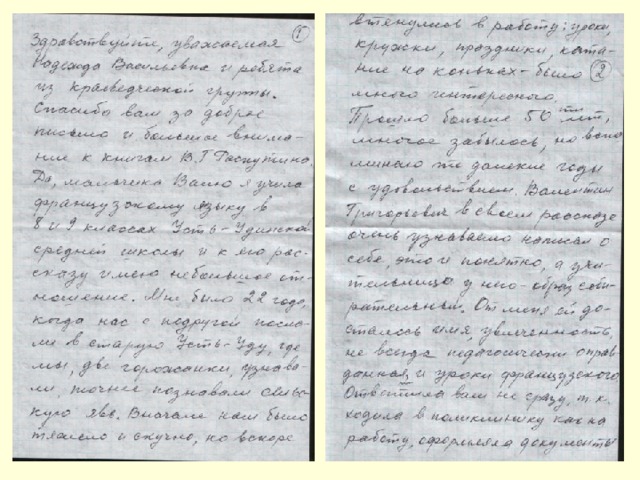 1
Здравствуйте, уважаемая
Надежда Васильевна и ребята
из краеведческой группы.
Спасибо вам за доброе
письмо и большое внима-
ние к книгам В.Г Распутина.
Да, мальчика Валю я учила
французскому языку в
8 и 9 классах Усть-Удинской
средней школы и к его рас-
сказу имею небольшое от-
ношение. Мне было 22 года,
когда нас с подругой посла-
ли в старую Усть-Уду, где
мы, две горожанки, узнава-
ли, точнее познавали сельс-
кую явь. Вначале нам было
тяжело и скучно, но вскоре
втянулись в работу: уроки,
кружки, праздники, ката-
ние на коньках - было
2
много интересного.
Прошло больше 50 ти лет,
многое забылось, но вспо
минаю те далекие годы
с удовольствием. Валентин
Григорьевич в своем рассказе
очень узнаваемо написал о
себе, это и понятно, а учи-
тельница у него - образ соби-
рательный. От меня ей до-
сталось имя, увлеченность,
не всегда педагогически оправ-
данная, и уроки французского.
Ответила вам не сразу, т.к.
ходила в поликлинику как на
работу, оформляла документы